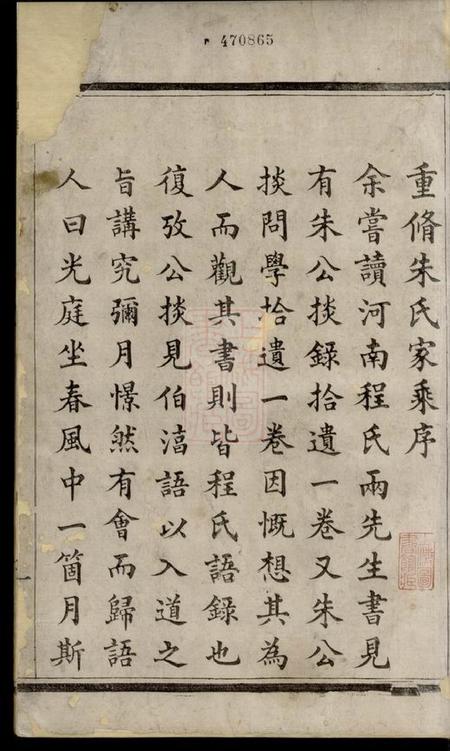 470865
重脩朱氏家乘序
余嘗讀河南程氏兩先生書見
有朱公掞錄拾遺一卷又朱公
掞問學拾遺一卷因慨想其為
人而觀其書則皆程氏語錄也
復攷公掞見伯湻語以入道之
旨講究彌月憬然有會而歸語
人曰光庭坐春風中一箇月斯